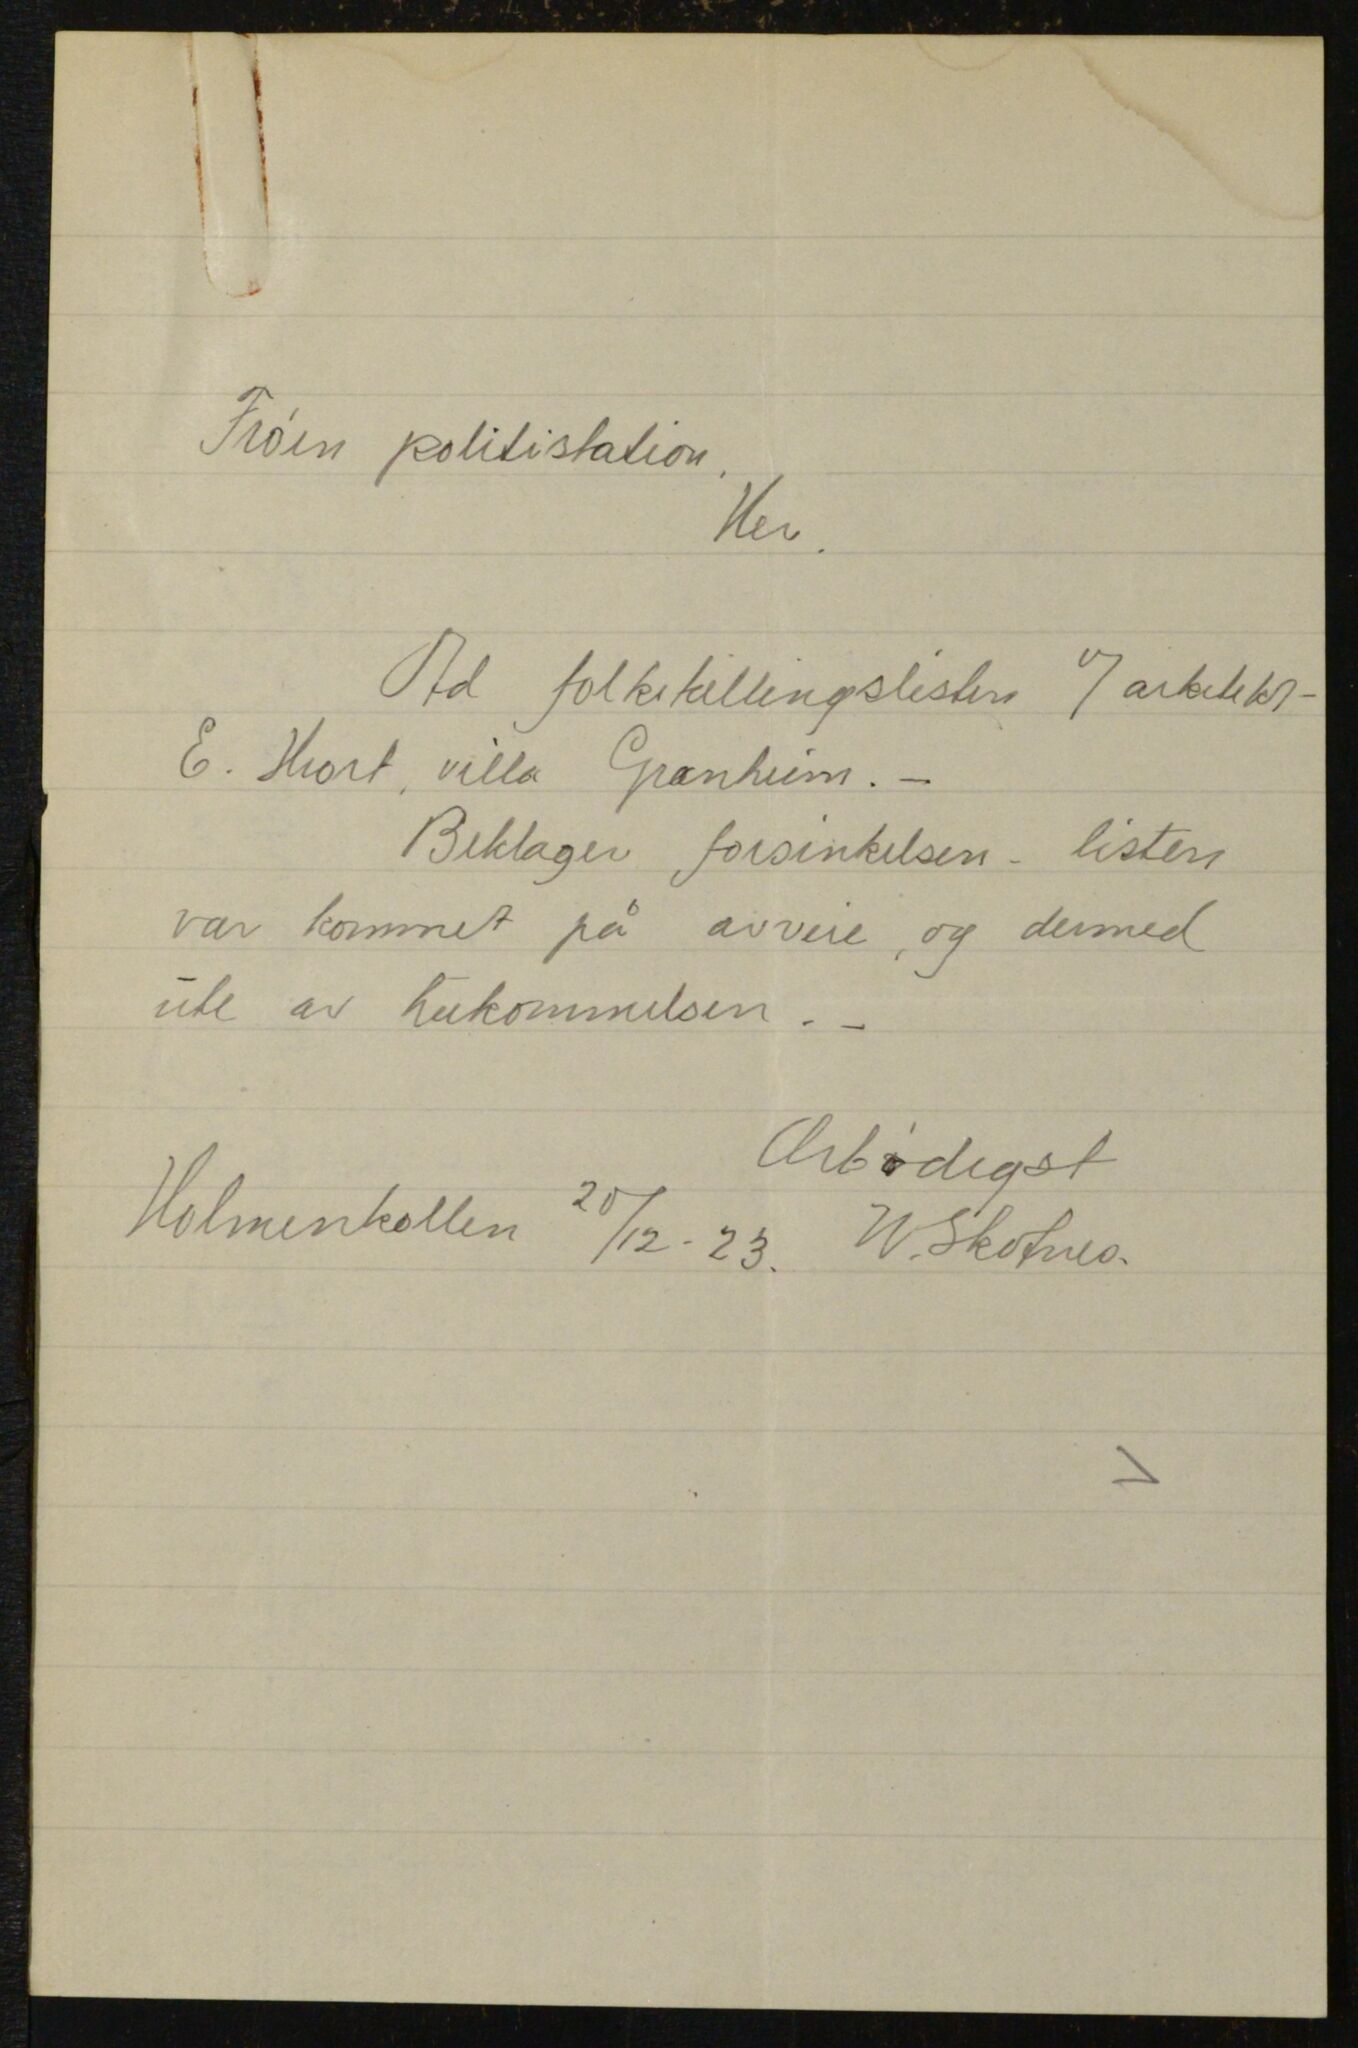 Frøen politistation.
Her.
Ad folketellingslisten v/ arkitekt
E. Hiort, villa Granheim. –
Beklager forsinkelsen – listen
var kommet på avveie, og dermed
ute av hukommelsen. –
Ærbødigst
Holmenkollen 20/12-23. W. Skotnes.